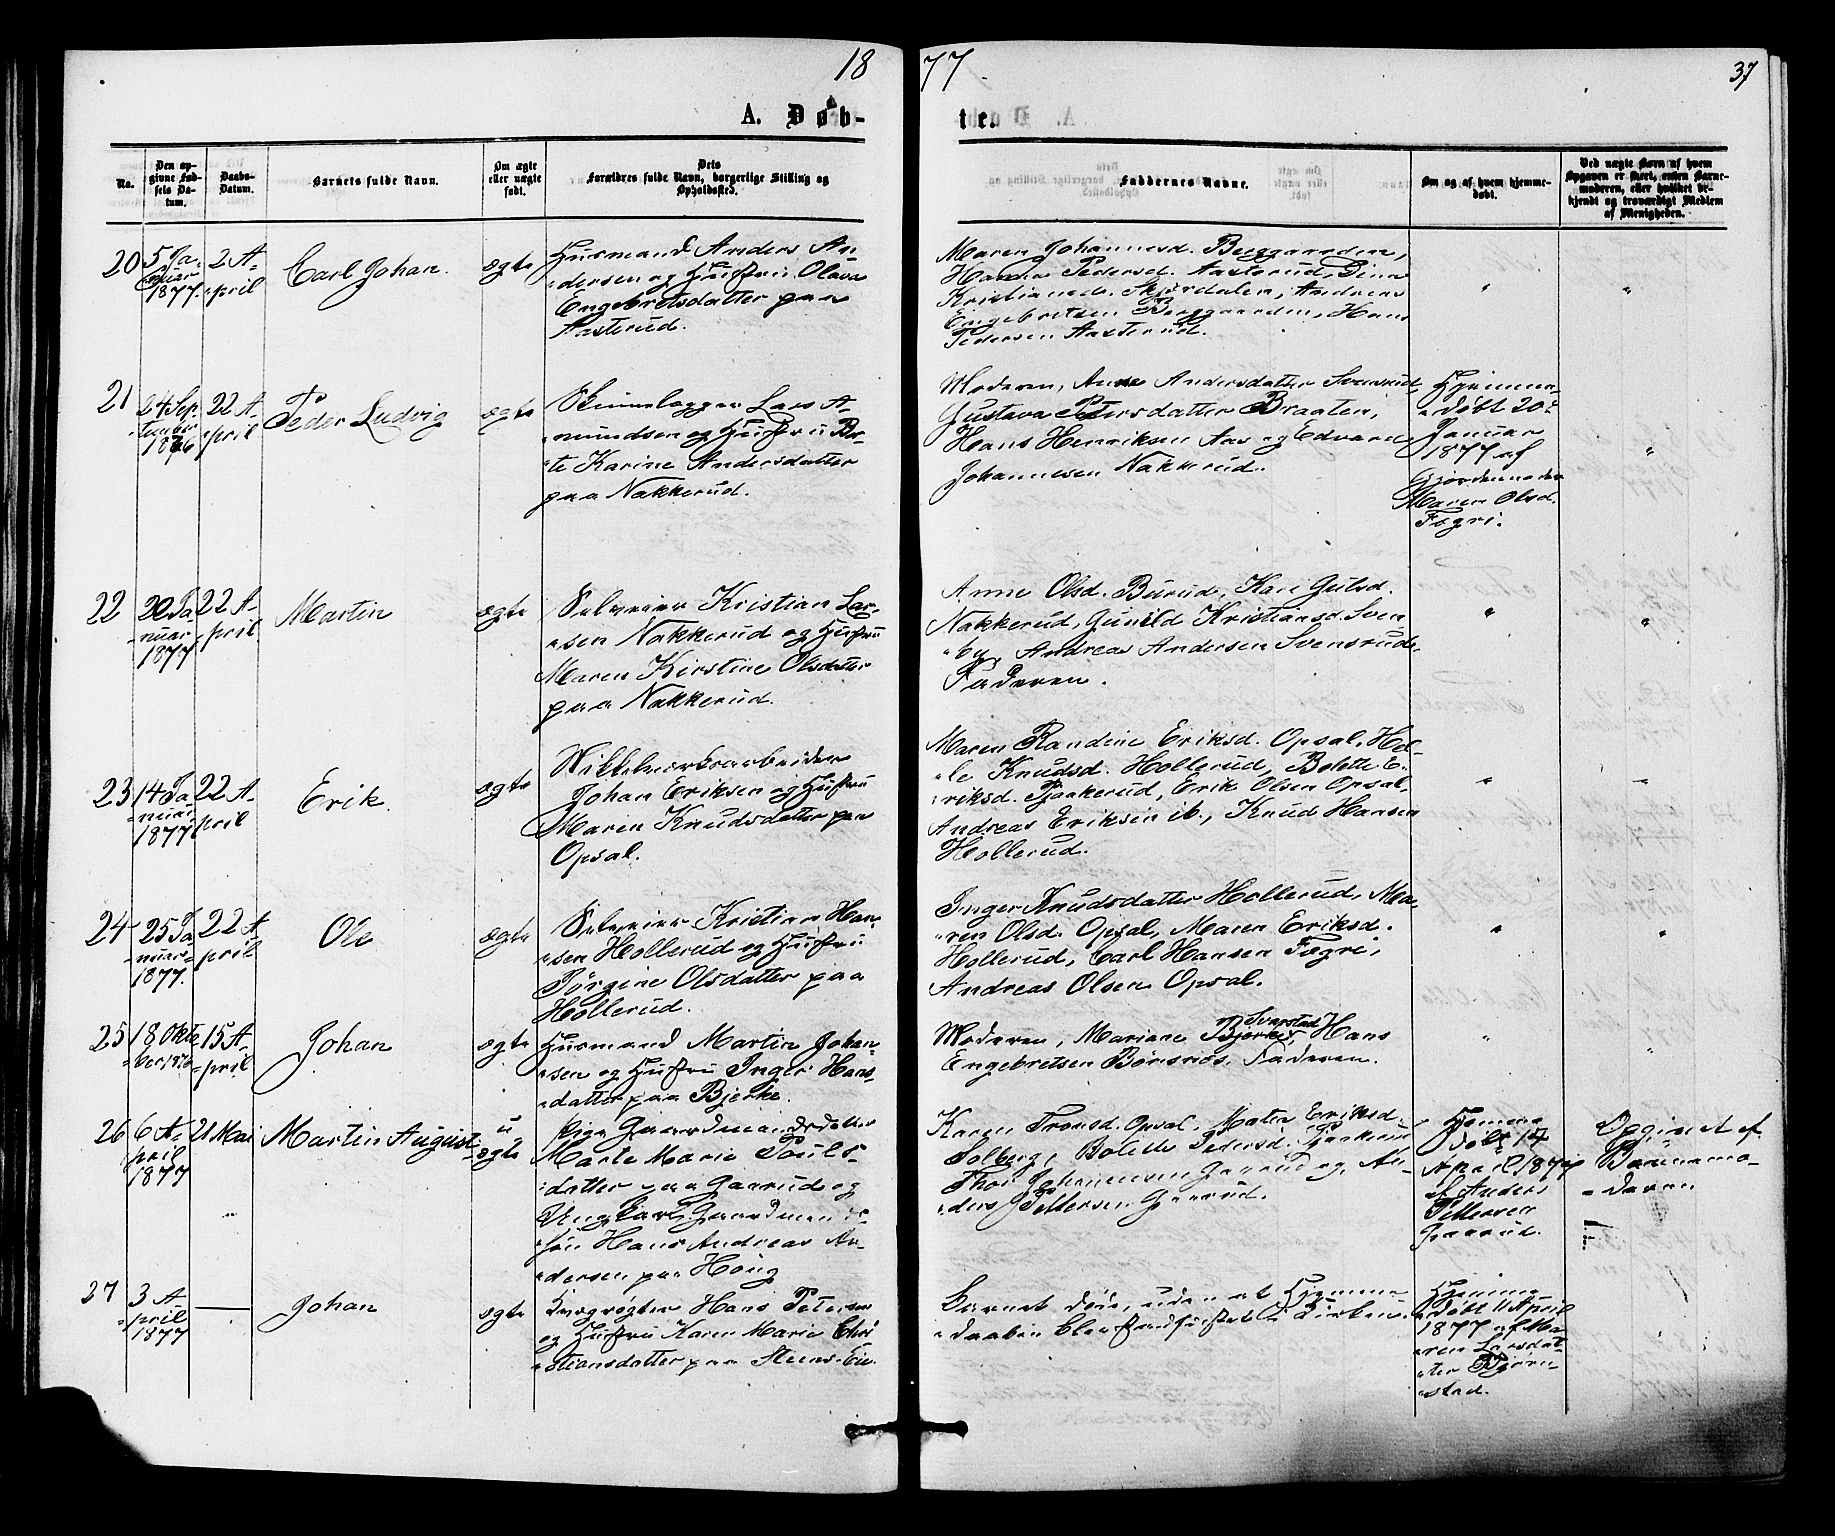 18
77
37
A. Døb-
te.
No.
Den op-
givne Fød-
sels Da-
tum.
Daabs-
Datum.
Barnets fulde Navn.
Om ægte
eller uægte
født.
Dets
Forældres fulde Navn, borgerlige Stilling og
Opholdssted.
Faddernes Navne.
Om og af hvem hjemme-
døbt.
Ved uægte Børn af hvem
Opgaven er skeet, enten Barne-
moderen, eller hvilket be-
kjendt og troværdigt Medlem
af Menigheden.
20
5 Ja-
nuar
1877.
2 A-
pril
Carl Johan.
ægte
Husmand Anders An-
dersen og Hustru Olava
Engebretsdatter paa
Aasterud.
Maren Johannesd. Byggaarden,
Hanna Pedersd. Aasterud, Dina
Kristiansd. Skjørdalen, Andreas
Engebretsen Byggaarden, Hans
Pedersen Aasterud.
21
24 Sep-
tember
1876
22 A-
pril
Peder Ludvig
ægte
Skinnelægger Lars A-
mundsen og Hustru Be-
te Karine Andersdatter
paa Nakkerud.
Moderen, Anne Andersdatter Svensrud,
Gustava Petersdatter Braaten,
Hans Henriksen Aas og Edvard
Johannesen Nakkerud.
Hjemme-
døbt 20de
Januar
1877 af
Gjordemoder
Maren Olsd.
Fægri.
22
20 Ja-
nuar
1877
22 A-
pril
Martin
ægte
Selveier Kristian Lar-
sen Nakkerud og Hustru
Maren Kirstine Olsdatter
paa Nakkerud.
Anne Olsd. Burud, Kari Gulsd.
Nakkerud, Gunild Kristiansd. Sven-
by, Andreas Andersen Svensrud,
Faderen.
23
14 Ja-
nuar
1877
22 A-
pril
Erik.
ægte
Nikkelverksarbeider
Johan Eriksen og Hustru
Maren Knudsdatter paa
Opsal.
Maren Randine Eriksd. Opsal, Hel-
le Knudsd. Hollerud, Bolette E-
riksd. Tjaakerud, Erik Olsen Opsal,
Andreas Eriksen ib., Knud Hansen
Hollerud.
24
25 Ja-
nuar
1877.
22 A-
pril
Ole
ægte
Selveier Kristian Han-
sen Hollerud og Hustru
Jørgine Olsdatter paa
Hollerud.
Inger Knudsdatter Hollerud, Ma-
ren Olsd. Opsal, Maren Eriksd.
Hollerud, Carl Hansen Fægri,
Andreas Olsen Opsal.
25
18 Okto-
ber 1876
15 A-
pril
Johan
ægte
Husmand Martin Johan-
sen og Hustru Inger Hans-
datter paa Bjerke.
Moderen, Mariane Svarstad Hans
Engebretsen Børsnæs, Faderen.
26
6 A-
pril
1877
21 Mai
Martin August
u
ægte
Pige Gaardmandsdatter
Marte Marie Pouls-
datter paa Gaarud og
Ungkarl Gaardmands-
søn Hans Andreas An-
dersen paa Høug
Karen Tronsd. Opsal, Mater Eriksd.
Solberg, Bolette Pedersd. Tjaakerud
Thor Johannesen Gaarud og An-
ders Pettersen Gaarud.
Hjemme-
døbt 17
April 1877
af Anders
Pettersen
Gaarud.
Opgivet af
Barnemo-
deren
27
3 A-
pril
1877
Johan
ægte
Kvægrøgter Hans Petersen
og Hustru Karen Marie Chri-
stiansdatter paa Steens-Eie.
Barnet døde, uden at Hjemme-
daaben blev stadfæstet i Kirken.
Hjemme-
døbt 11 April
1877 af Ma-
ren Larsdat-
ter Bjørn-
stad.